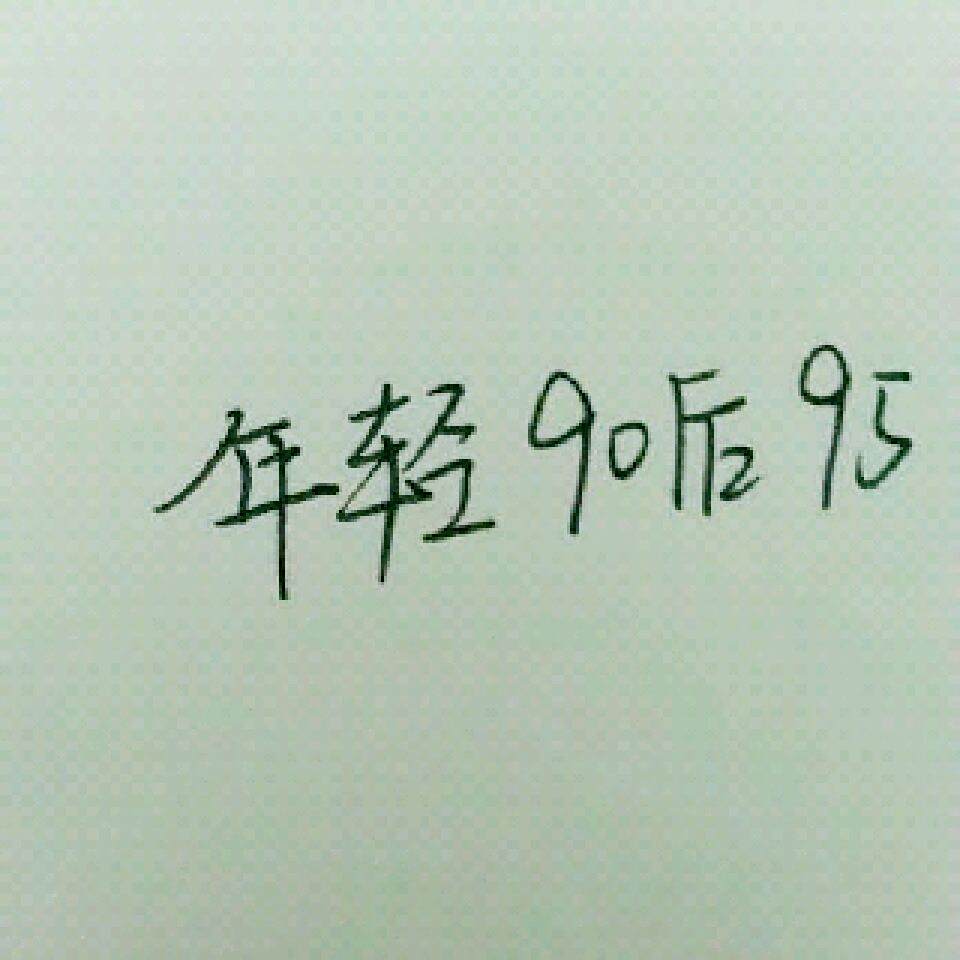 年轻90后95